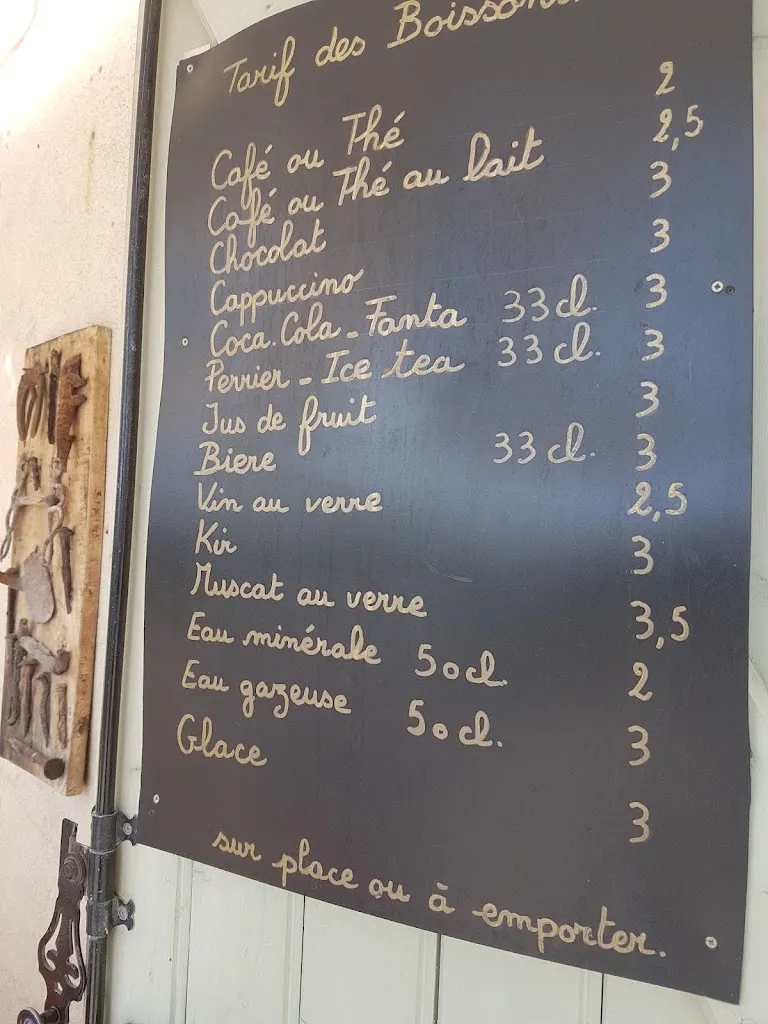 Tarif des Boissons.
Café ou Thé 2
Café ou Thé au lait 2,5
Chocolat 3
Cappuccino 3
Coca.Cola - Fanta 33 cl. 3
Perrier - Ice tea 33 cl. 3
Jus de fruit 3
Biere 33 cl. 3
Vin au verre 2,5
Kir 3
Muscat au verre 3,5
Eau minérale 50 cl. 2
Eau gazeuse 50 cl. 3
Glace 3
sur place ou à emporter.